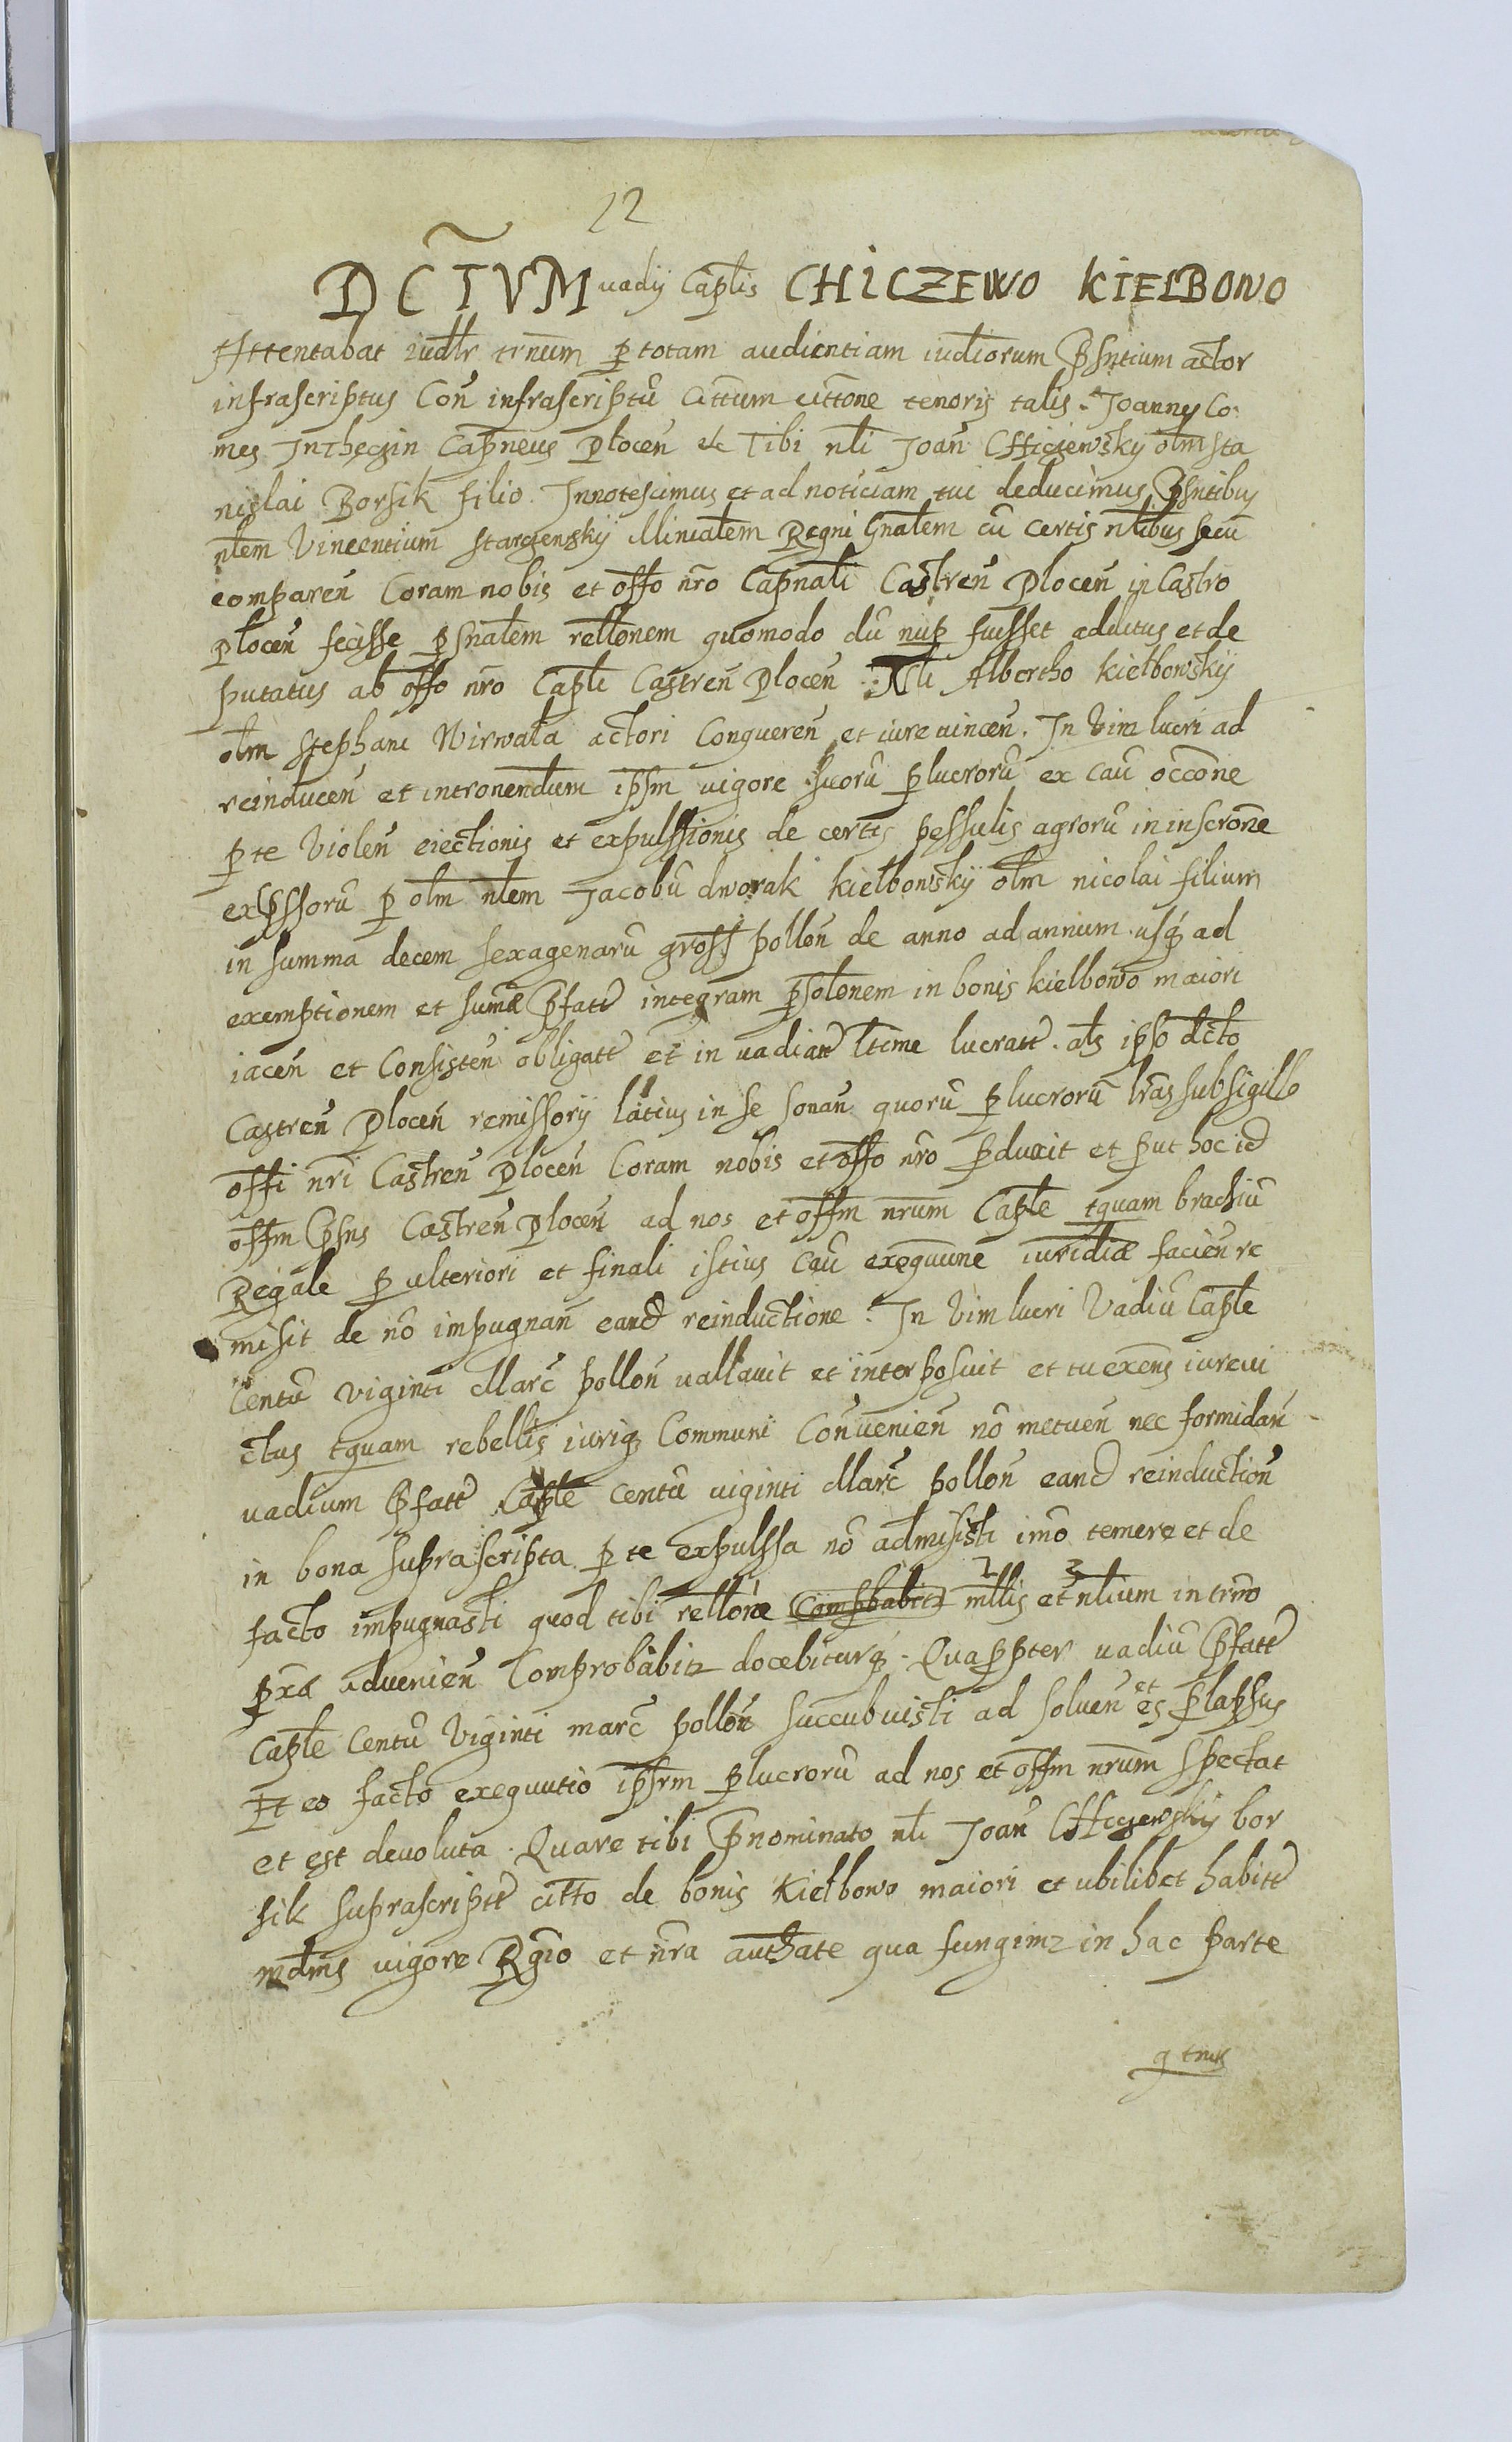 12
DCT̃VM uadÿ Cap̃lis CHICZEWO KIELBOWO
Attentabat iudl̃r tr̃num p totam audientiam iudiorum Psñtium actor
infrascriptus Coñ infrascriptũ Cittum cittone tenoris talis. Joannes Co:
mes In Capneus Ploceñ etc Tibi nl̃i Joañ olm Sta
nislai Borsik filio. Innotescimus et ad noticiam tui deducimus Psñtibus
nlẽm Vincentium Ministĩalem Regni Gñalem cũ certis nl̃ibus secũ
compareñ Coram nobis et offõ nr̃o Capnali Castreñ Ploceñ in Castro
Ploceñ fecisse psñalem rellõnem quomodo dũ nup fuisset additus et de
putatus ab offõ nr̃o Cap̃li Castreñ Ploceñ Nl̃i Albertho Kielbowskÿ
olm Stephani Wirwała actori Conquereñ et iure uinceñ. In Vim lucri ad
reinduceñ et intromendum ip̃sm uigore suorũ plucrorũ ex caũ occõne
p te Violeñ eiectionis et expulssionis de certis pessulis agrorũ in inscrõne
expssorũ p olm nlẽm Jacobũ dworak kielbowskÿ olm nicolai filium
in summa decem sexagenarũ gross polloñ de anno ad annum usq ad
exemptionem et sum̃æ Pfatt integram psolõnem in bonis kielbowo maiori
iaceñ et Consisteñ obligatt et in uadiatt ltime lucratt. als ip̃so dcto
Castreñ Ploceñ remissorÿ latius in se sonañ quorũ plucrorũ lr̃as sub sigillo
offi nr̃i Castreñ Ploceñ Coram nobis et offõ nr̃o pduxit et put hoc id
offm Psñs Castreñ Ploceñ ad nos et offm nr̃um Cap̃le tquam brachiũ
Regale p ulteriori et finali istius caũ exequune iuridiæ facieñ re
misit de nõ impugnañ eand reinductione. In Vim lucri Vadiũ Cap̃le
Centũ viginti Marc̃ polloñ uallauit et interposuit et tu exens iureui
ctus tquam rebellis iuriq Communi Conuenieñ nõ metueñ nec formidañ
uadium Pfatt Cap̃le centũ uiginti Marc̃ polloñ eand reinductioñ
in bona suprascripta p te expulssa nõ admisisti imõ temere et de
facto impugnasti quod tibi rellõne Compbabit 2 mllis et 3 nlium in trmõ
px̃a adunieñ Comprobabit docebiturq. Quappter uadiũ Pfatt
Cap̃le Centũ Viginti marc̃ polloñ succubuisti ad solueñ et es plapsus
Et eo facto exequutio ip̃srm plucrorũ ad nos et offm nr̃um spectat
et est deuoluta. Quare tibi Pnominato nl̃i Joañ bor
sik suprascriptt citto de bonis Kielbowo maiori et ubilibet habitt
mdms uigore Rgiõ et nr̃a authate qua fungim2 in hac parte